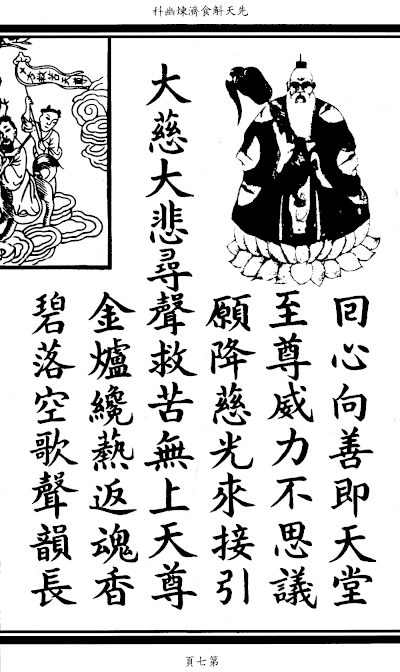 先天斛食濟煉幽科
回心向善即天堂
至尊威力不思議
願降慈光來接引
大慈大悲尋聲救苦無上天尊
金爐纔熱返魂香
碧落空歌聲韻長
第七頁